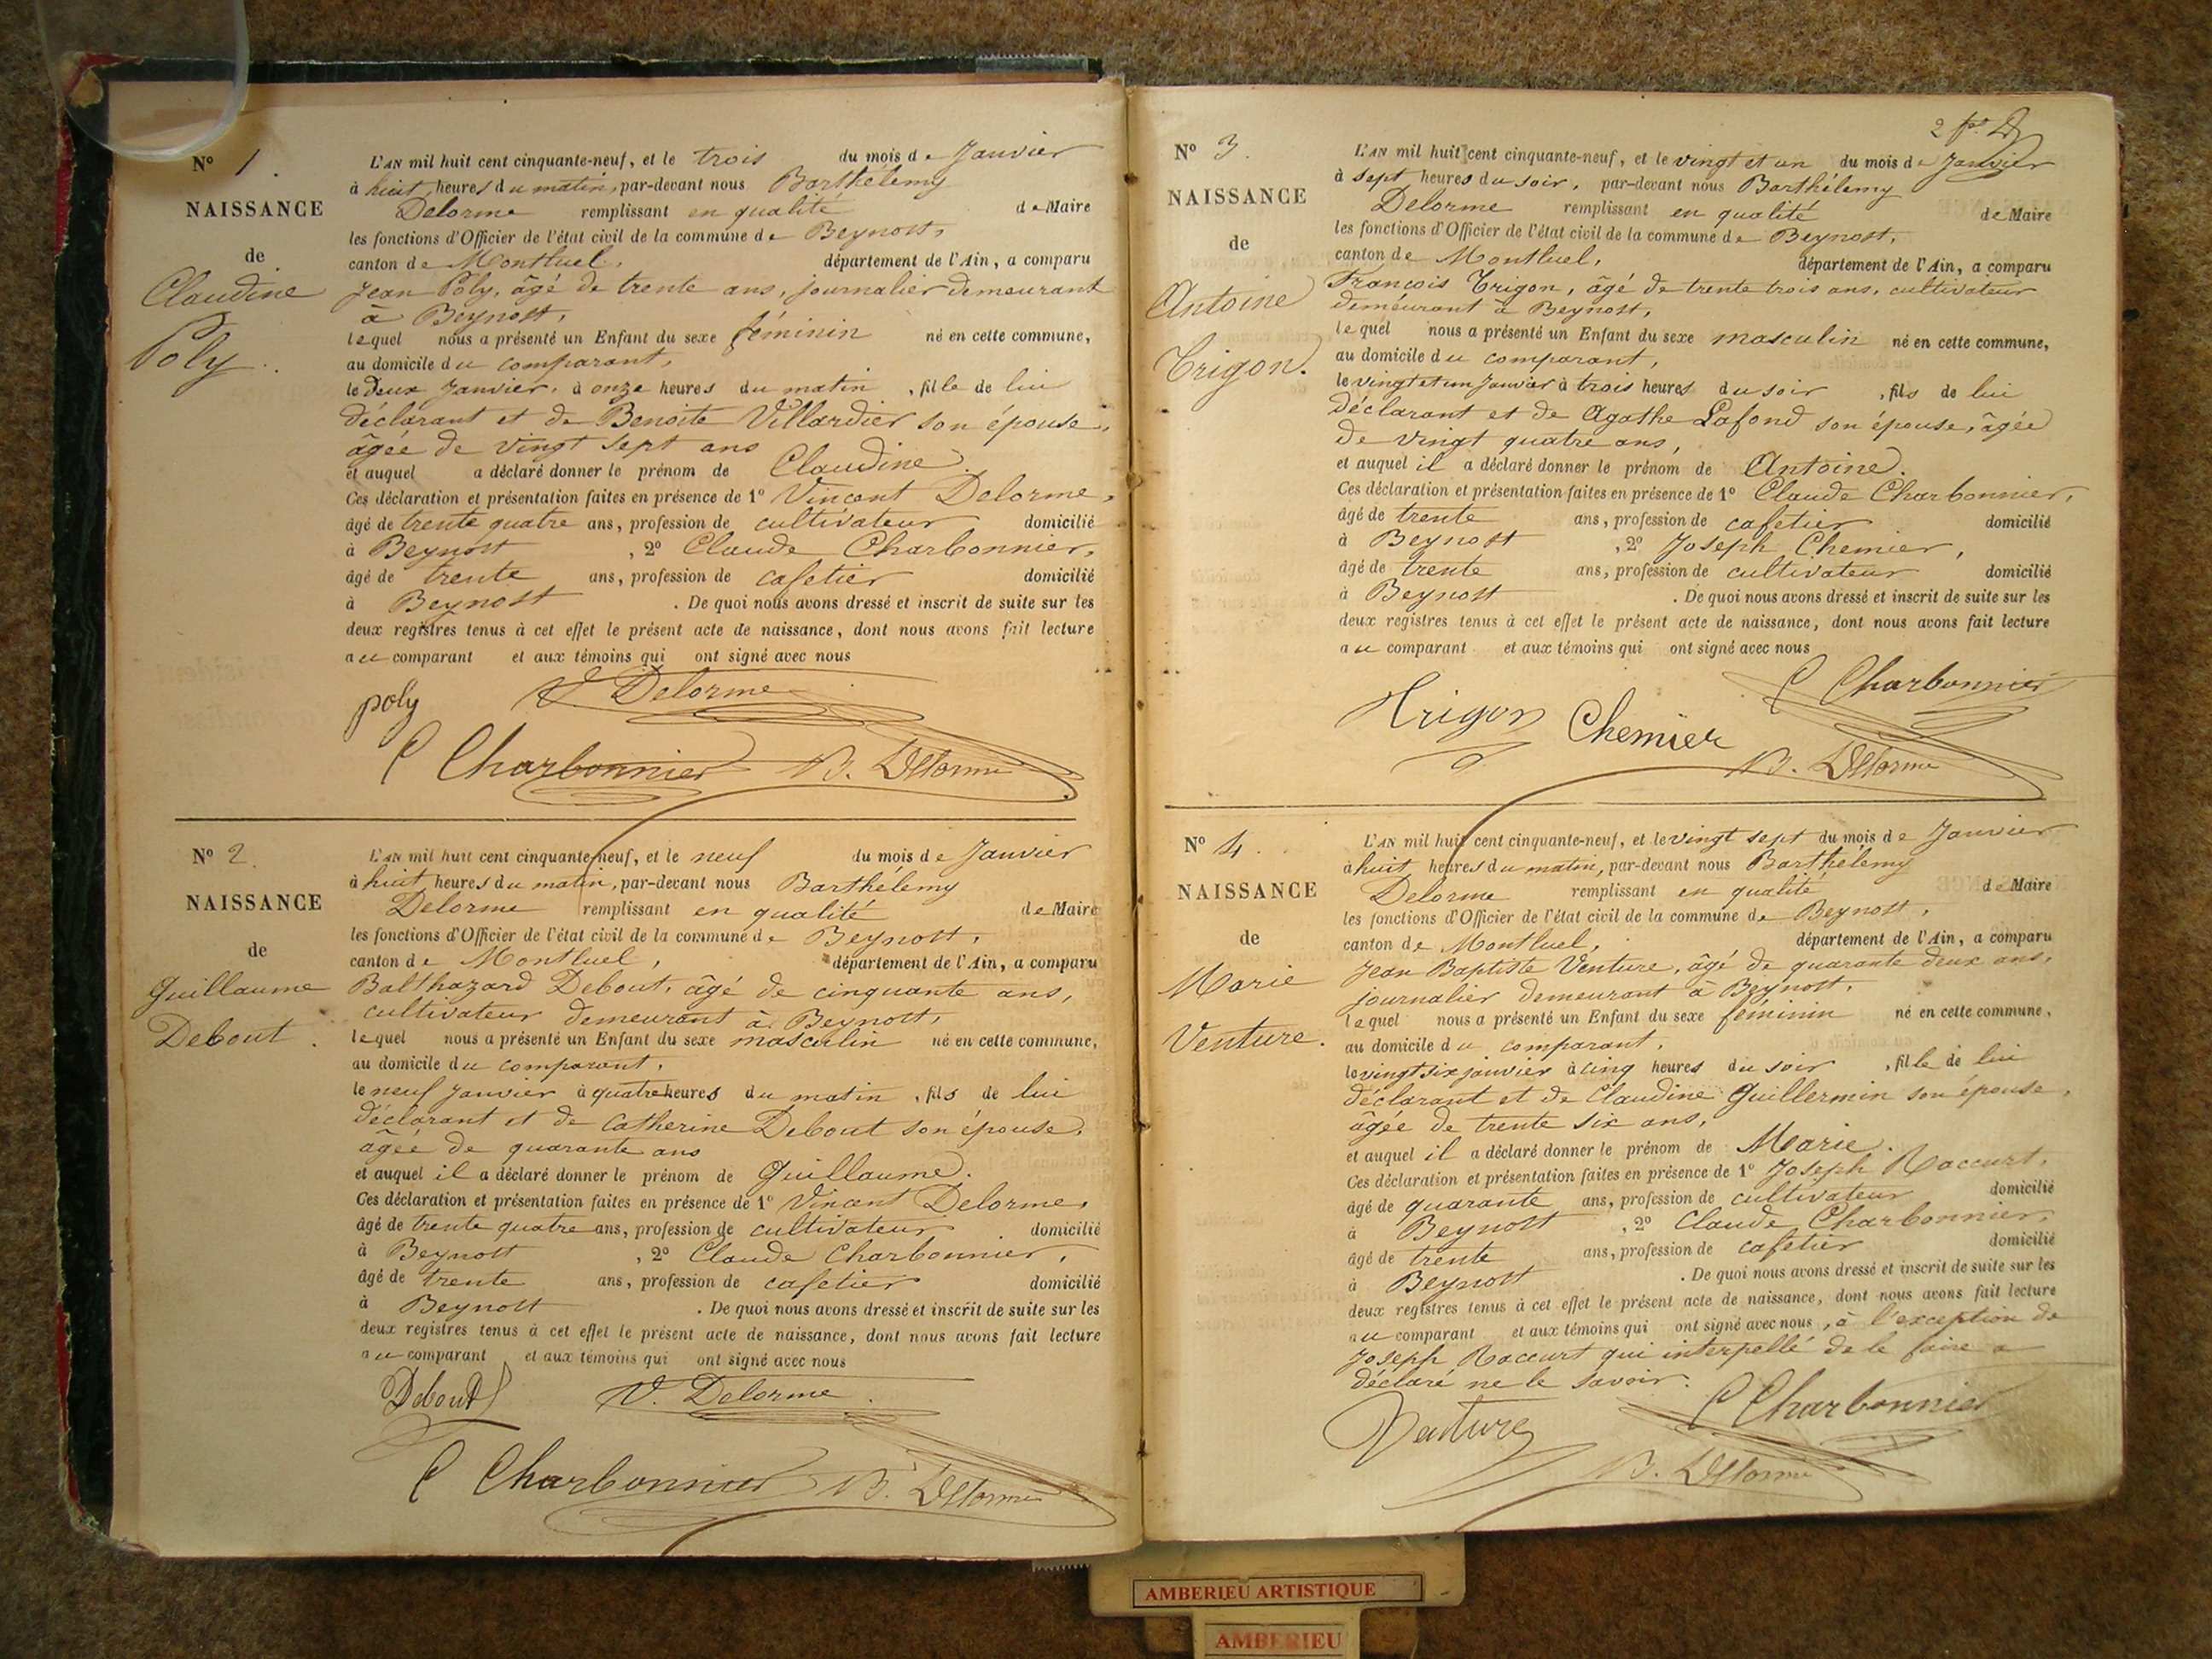 N° 1.
NAISSANCE
de
Claudine
Poly.
L'AN mil huit cent cinquante-neuf, et le trois du mois de Janvier
à huit heures du matin, par-devant nous Barthélemy
Delorme remplissant en qualité de Maire
les fonctions d'Officier de l'état civil de la commune de Beynost,
canton de Montluel, département de l'Ain, a comparu
Jean Poly, âgé de trente ans, journalier demeurant
à Beynost,
lequel nous a présenté un Enfant du sexe féminin né en cette commune,
au domicile du comparant,
le Deux Janvier, à onze heures du matin, fille de lui
déclarant et de Benoite Villardier son épouse,
âgée de vingt sept ans
et auquel a déclaré donner le prénom de Claudine.
Ces déclaration et présentation faites en présence de 1° Vincent Delorme,
âgé de trente quatre ans, profession de cultivateur domicilié
à Beynost, 2° Claude Charbonnier,
âgé de trente ans, profession de cafetier domicilié
à Beynost. De quoi nous avons dressé et inscrit de suite sur les
deux registres tenus à cet effet le présent acte de naissance, dont nous avons fait lecture
au comparant et aux témoins qui ont signé avec nous
poly V. Delorme
C Charbonnier B. Delorme
N° 2.
NAISSANCE
de
Guillaume
Debout.
L'AN mil huit cent cinquante-neuf, et le neuf du mois de Janvier
à huit heures du matin, par-devant nous Barthélemy
Delorme remplissant en qualité de Maire
les fonctions d'Officier de l'état civil de la commune de Beynost,
canton de Montluel, département de l'Ain, a comparu
Balthazard Debout, âgé de cinquante ans,
cultivateur demeurant à Beynost,
lequel nous a présenté un Enfant du sexe masculin né en cette commune,
au domicile du comparant,
le neuf Janvier à quatre heures du matin, fils de lui
déclarant et de Catherine Debout son épouse,
âgée de quarante ans
et auquel il a déclaré donner le prénom de Guillaume.
Ces déclaration et présentation faites en présence de 1° Vincent Delorme,
âgé de trente quatre ans, profession de cultivateur domicilié
à Beynost, 2° Claude Charbonnier,
âgé de trente ans, profession de cafetier domicilié
à Beynost. De quoi nous avons dressé et inscrit de suite sur les
deux registres tenus à cet effet le présent acte de naissance, dont nous avons fait lecture
au comparant et aux témoins qui ont signé avec nous
Debout V. Delorme
C Charbonnier B. Delorme
2
N° 3.
NAISSANCE
de
Antoine
Trigon.
L'AN mil huit cent cinquante-neuf, et le vingt et un du mois de Janvier
à sept heures du soir, par-devant nous Barthélemy
Delorme remplissant en qualité de Maire
les fonctions d'Officier de l'état civil de la commune de Beynost,
canton de Montluel, département de l'Ain, a comparu
François Trigon, âgé de trente trois ans, cultivateur
demeurant à Beynost,
lequel nous a présenté un Enfant du sexe masculin né en cette commune,
au domicile du comparant,
le vingt et un Janvier à trois heures du soir, fils de lui
déclarant et de Agathe Lafond son épouse, âgée
de vingt quatre ans,
et auquel il a déclaré donner le prénom de Antoine.
Ces déclaration et présentation faites en présence de 1° Claude Charbonnier,
âgé de trente ans, profession de cafetier domicilié
à Beynost, 2° Joseph Chemier,
âgé de trente ans, profession de cultivateur domicilié
à Beynost. De quoi nous avons dressé et inscrit de suite sur les
deux registres tenus à cet effet le présent acte de naissance, dont nous avons fait lecture
au comparant et aux témoins qui ont signé avec nous
C Charbonnier
Trigon Chemier
B. Delorme
N° 4.
NAISSANCE
de
Marie
Venture.
L'AN mil huit cent cinquante-neuf, et le vingt sept du mois de Janvier
à huit heures du matin, par-devant nous Barthélemy
Delorme remplissant en qualité de Maire
les fonctions d'Officier de l'état civil de la commune de Beynost,
canton de Montluel, département de l'Ain, a comparu
Jean Baptiste Venture, âgé de quarante deux ans,
journalier demeurant à Beynost,
lequel nous a présenté un Enfant du sexe féminin né en cette commune,
au domicile du comparant,
le vingt six janvier à cinq heures du soir, fille de lui
déclarant et de Claudine Guillermin son épouse,
âgée de trente six ans,
et auquel il a déclaré donner le prénom de Marie.
Ces déclaration et présentation faites en présence de 1° Joseph Raccurt,
âgé de quarante ans, profession de cultivateur domicilié
à Beynost, 2° Claude Charbonnier,
âgé de trente ans, profession de cafetier domicilié
à Beynost. De quoi nous avons dressé et inscrit de suite sur les
deux registres tenus à cet effet le présent acte de naissance, dont nous avons fait lecture
au comparant et aux témoins qui ont signé avec nous, à l'exception de
Joseph Raccurt qui interpellé de le faire a
déclaré ne le savoir.
Venture C Charbonnier
B. Delorme
AMBERIEU ARTISTIQUE
AMBERIEU